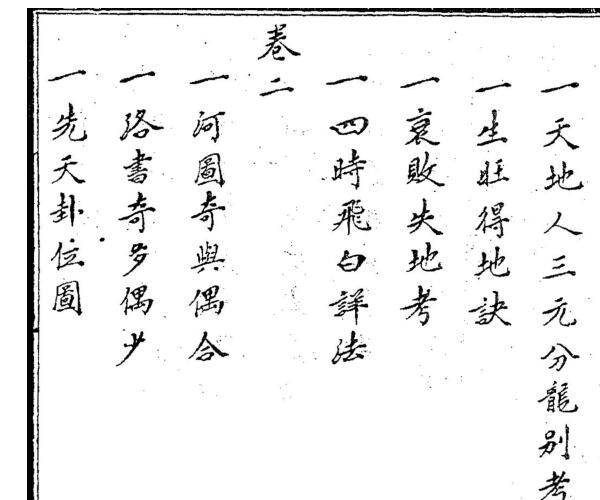 一天地人三元分龍別考
一生旺得地訣
一衰敗失地考
一四時飛白詳法
卷二
一河圖奇與偶合
一洛書奇多偶少
一先天卦位圖